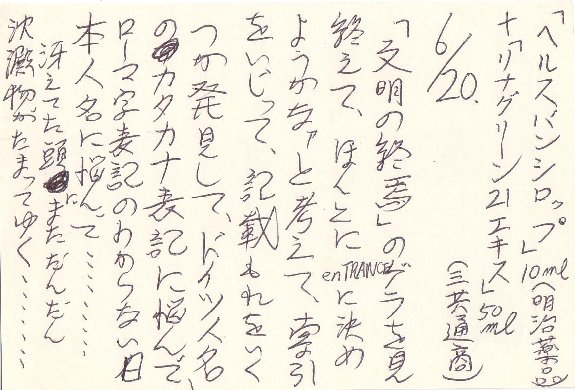 「ヘルスバンシロップ」10ml（明治薬品）
+「リナグリーン21エキス」50ml（三共通商）
6/20.
「文明の終焉」のゲラを見
終えて、ほんとに enTRANCEに決め
ようかなァと考えて、索引
をいじって、記載もれをいく
つか発見して、ドイツ人名
のカタカナ表記に悩んで、
ローマ字表記のわからない日
本人名に悩んで…………
冴えてた頭にまただんだん
沈澱物がたまってゆく…………